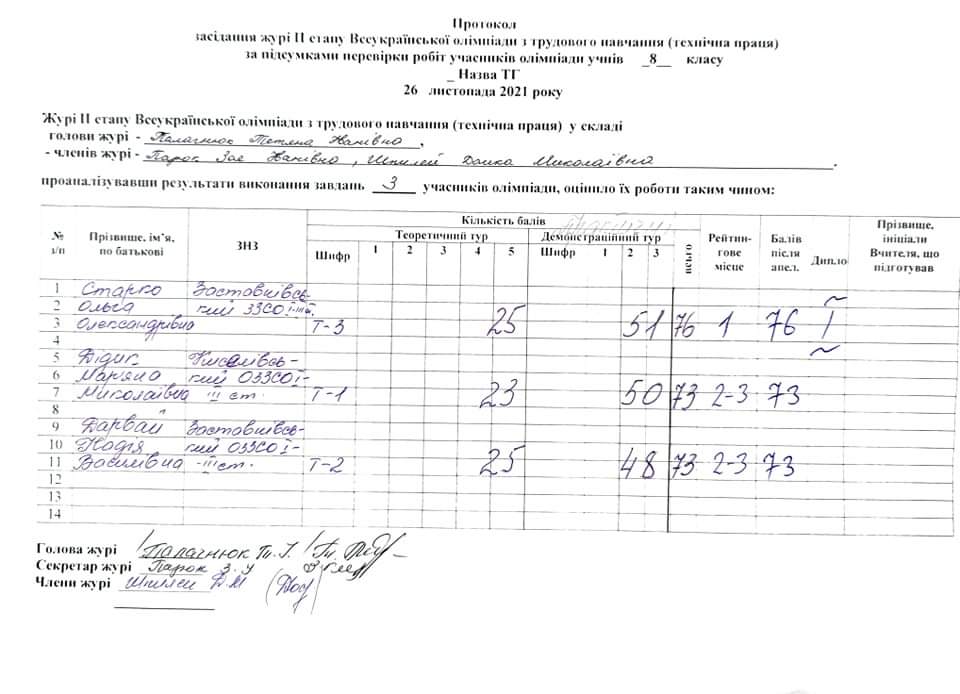 Протокол
засідання журі ІІ етапу Всеукраїнської олімпіади з трудового навчання (технічна праця)
за підсумками перевірки робіт учасників олімпіади учнів _8_ класу
_ Назва ТГ
26 листопада 2021 року
Журі ІІ етапу Всеукраїнської олімпіади з трудового навчання (технічна праця) у складі
голови журі - Палагнюк Тетяна Іванівна ,
- членів журі - Парок Зоя Іванівна , Шпилей Домка Миколаївна .
проаналізувавши результати виконання завдань 3 учасників олімпіади, оцінило їх роботи таким чином:
№ з/п Прізвище, ім’я, по батькові ЗНЗ Кількість балів Рейтингове місце Балів після апел. Дипло Прізвище, ініціали Вчителя, що підготував
Теоретичний тур Демонстраційний тур всього
Шифр 1 2 3 4 5 Шифр 1 2 3
1 Старко Заставнівсь-
2 Ольга кий ЗЗСО І-ІІІ
3 Олександрівна Т-3 25 51 76 1 76 І
4
5 Дідик
6 Мар'яна кий ОЗЗСО І-
7 Миколаївна ІІІ ст. Т-1 23 50 73 2-3 73
8
9 Дарвай Заставнівсь-
10 Надія кий ОЗЗСО І-
11 Василівна -ІІІ ст. Т-2 25 48 73 2-3 73
12
13
14
Голова журі Палагнюк Т. І.
Секретар журі Парок З. І
Члени журі Шпилей Д. М